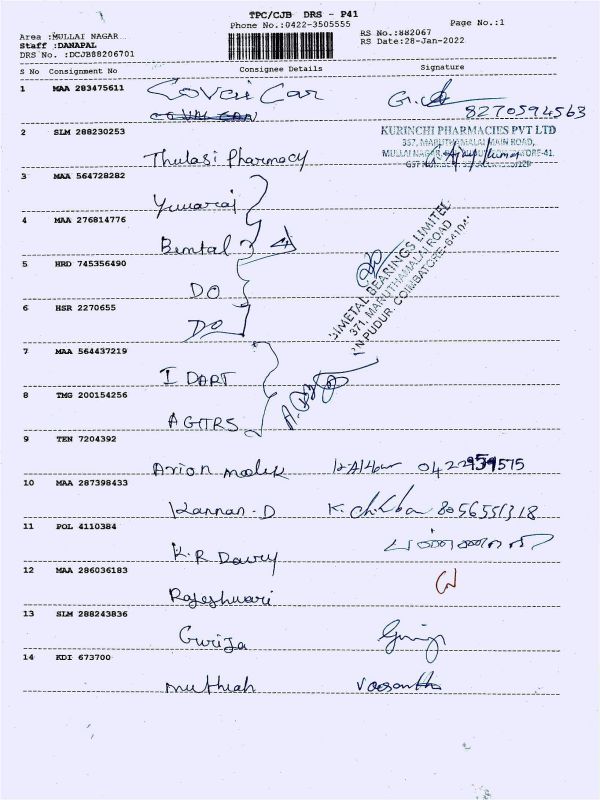 TPC/CJB DRS - P41
Phone No.:0422-3505555
Page No.:1
Area :MULLAI NAGAR
Staff :DANAPAL
DRS No. :DCJB88206701
RS No.:882067
RS Date:28-Jan-2022
S No Consignment No Consignee Details Signature
1 MAA 283475611 Covai Car
8270594563
2 SLM 288230253 Thulasi Pharmacy
KURINCHI PHARMACIES PVT LTD
357, MARUTHAMALAI MAIN ROAD,
3 MAA 564728282 Yuvaraj
4 MAA 276814776 Bimtal
5 HRD 745356490 DO
6 HSR 2270655 DO
BIMETAL BEARINGS LIMITED
371, MARUTHAMALAI ROAD
PUDUR, COIMBATORE
7 MAA 564437219 I DART
8 TMG 200154256
9 TEN 7204392 Arion
10 MAA 287398433 Kannan. D 8056551318
11 POL 4110384 K.R
12 MAA 286036183 Rajeshwari
13 SLM 288243836 Girija
14 KDI 673700 Muthiah Vaasantha